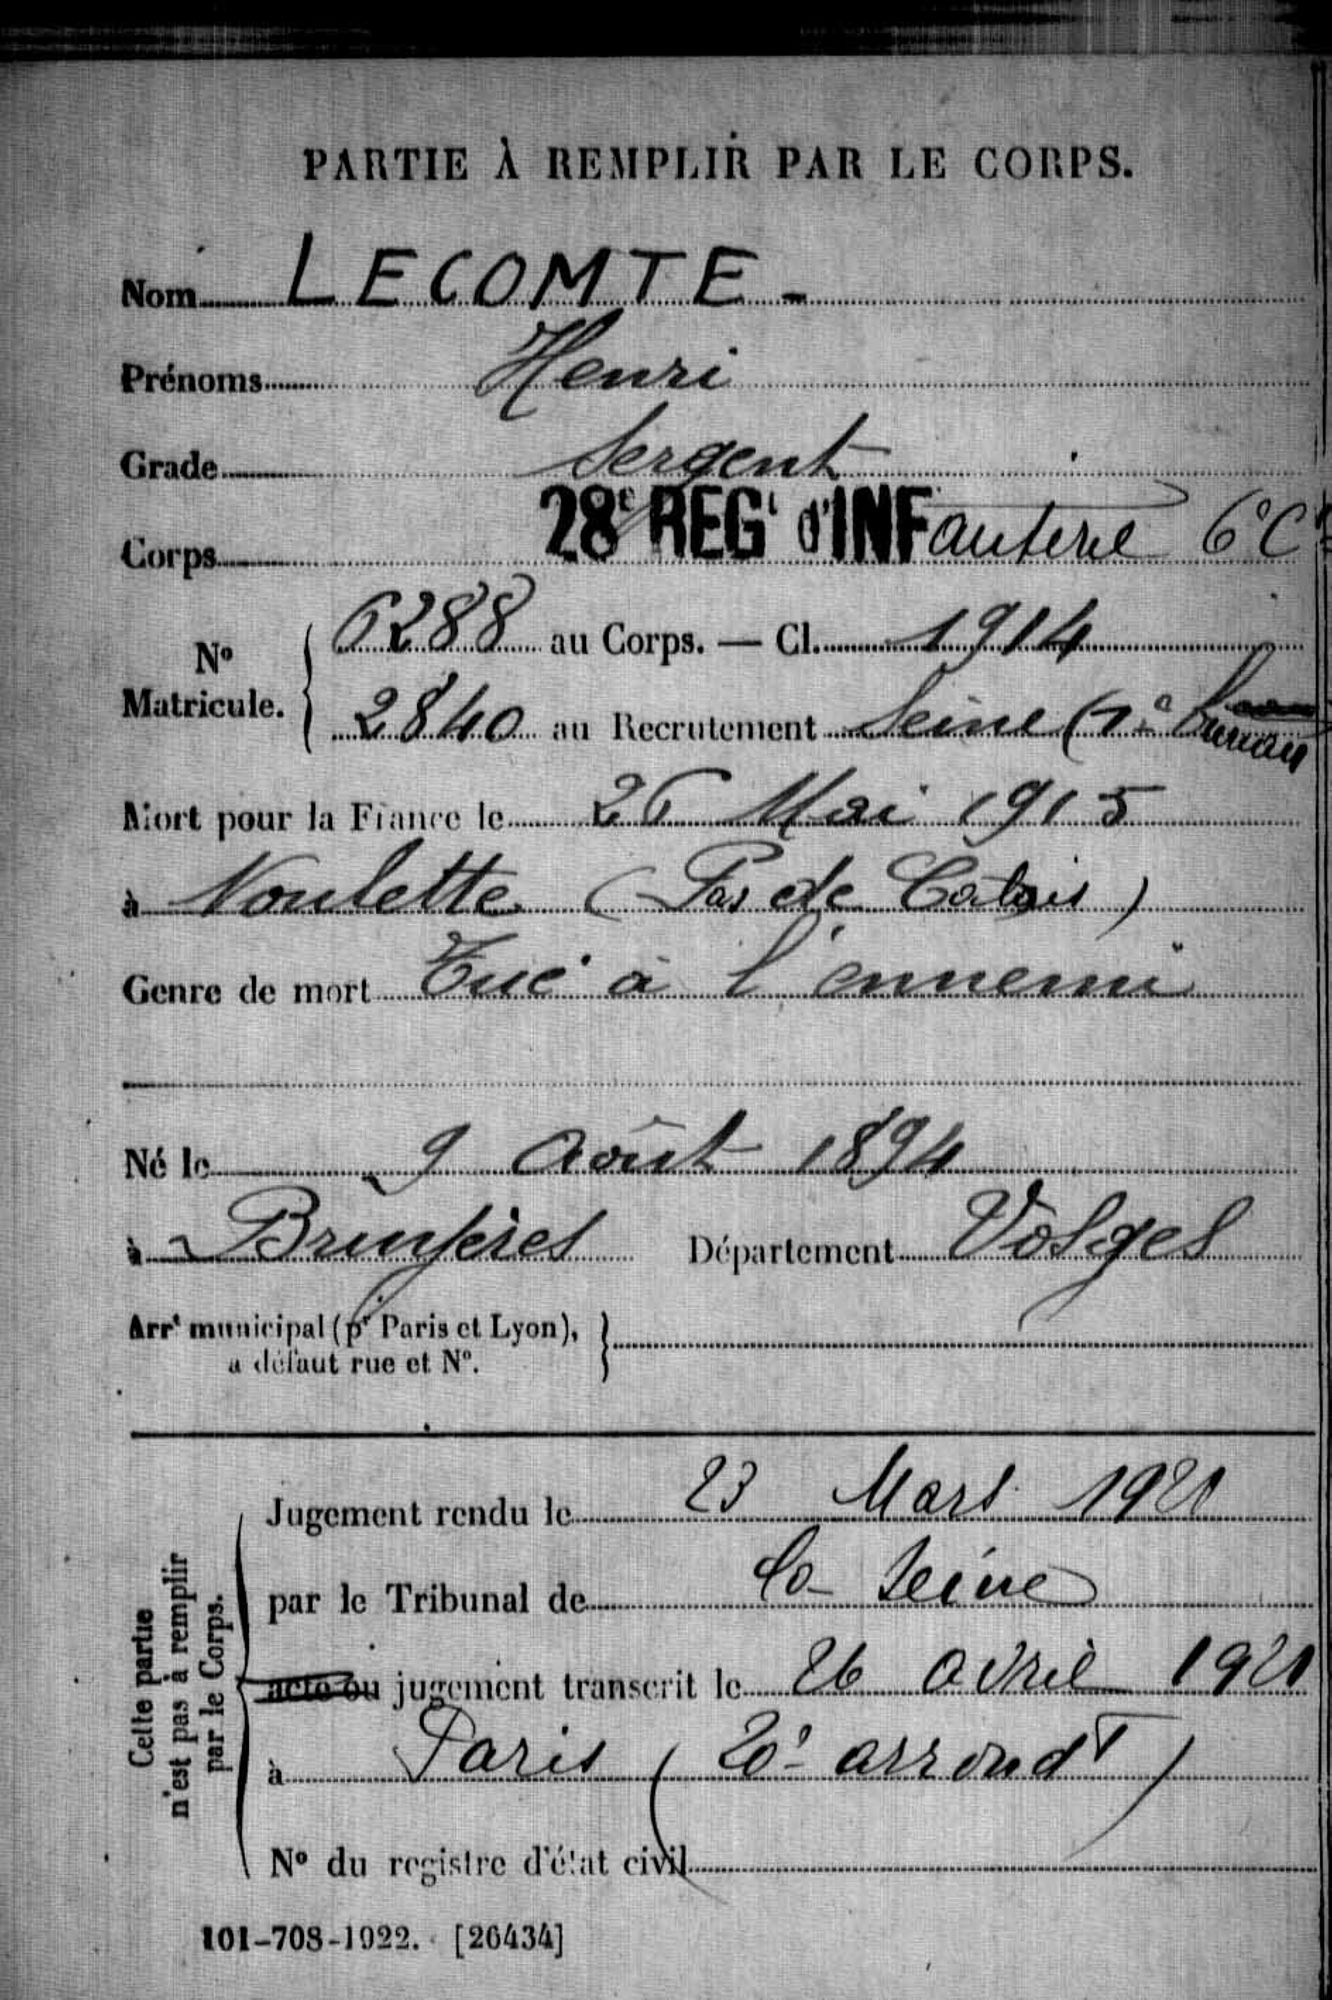 PARTIE À REMPLIR PAR LE CORPS.
Nom LECOMTE -
Prénoms Henri
Grade Sergent
Corps 28e REGt d'INFanterie 6e Cie
No Matricule. 6288 au Corps. — Cl. 1914
2840 au Recrutement Seine (1er bureau
Mort pour la France le 26 Mai 1915
à Noulette (Pas de Calais)
Genre de mort Tué à l'ennemi
Né le 9 Août 1894
à Bruyères Département Vosges
Arrt municipal (pr Paris et Lyon),
à défaut rue et No.
Cette partie
n'est pas à remplir
par le Corps.
Jugement rendu le 23 Mars 1921
par le Tribunal de la Seine
acte ou jugement transcrit le 26 avril 1921
à Paris (20e arrondt)
No du registre d'état civil
101-708-1922. [26434]